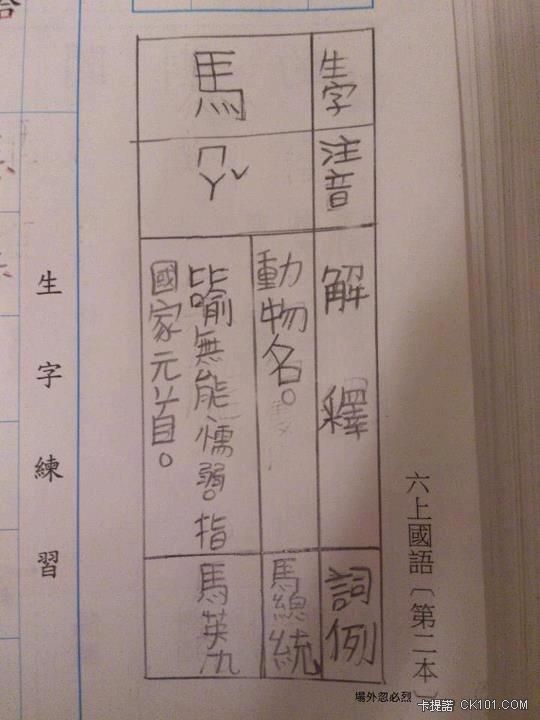 六上國語〔第二本〕
生字
注音
解釋
詞例
馬
ㄇㄚˇ
動物名。
馬總統
比喻無能懦弱。指
國家元首。
馬英九
生字練習
場外忽必烈
卡提諾 CK101.COM